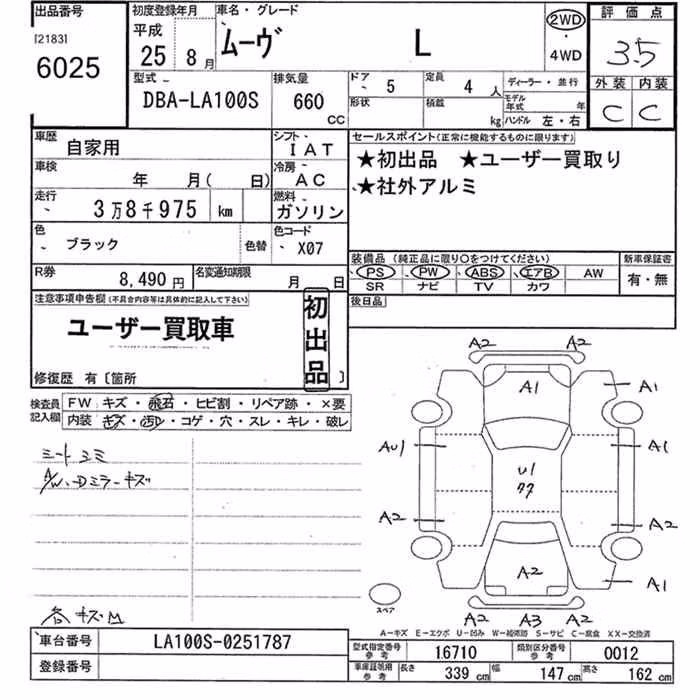 出品番号 初度登録年月 車名・グレード 2WD 評価点
[2183] 平成 ムーヴ L 3.5
6025 25年 8月 4WD
外装 内装
C C
型式 排気量 ドア 5 定員 4人 ディーラー・並行
DBA-LA100S 660 CC 形状 積載 kg モデル年式 年
ハンドル 左・右
車歴 自家用 シフト IAT セールスポイント(正常に機能するものに限ります)
車検 年 月( 日) 冷房 AC ★初出品 ★ユーザー買取り
走行 3万8千975 km 燃料 ガソリン ★社外アルミ
色 ブラック 色替 色コード X07
装備品 (純正品に限り○をつけてください) 新車保証書
PS PW ABS エアB AW 有・無
SR ナビ TV カワ
R券 8,490円 名変通知期限 月 日
後日品
注意事項申告欄(不具合内容等は具体的に記入して下さい)
ユーザー買取車
初出品
修復歴 有〔箇所 〕
検査員記入欄 FW キズ・飛石・ヒビ割・リペア跡・×要
内装 キズ・汚れ・コゲ・穴・スレ・キレ・破レ
シートシミ
A/W、Dミラーキズ
各キズM
A2 A2
A1 A1
AU1 A1
U1
A2 A2
A2 A1
A2 A3 A2
スペア
A-キズ E-エクボ U-凹み W-補修跡 S-サビ C-腐食 XX-交換済
車台番号 LA100S-0251787
登録番号
型式指定番号参考 16710 類別区分番号参考 0012
車庫証明用参考 長さ 339cm 幅 147cm 高さ 162cm